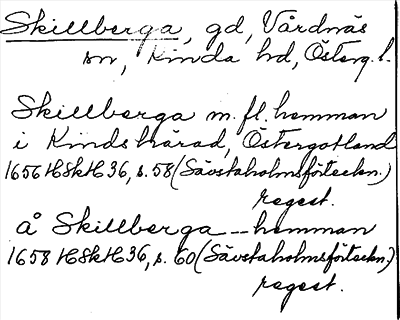 Skillberga, gd, Vårdnäs
sn, Kinda hd, Österg. l.
Skillberga m. fl. hemman
i Kindshärad, Östergotland
1656 HSkH 36, s. 58 (Sävstaholmsförteckn.)
regest.
å Skillberga -- hemman
1658 HSkH 36, s. 60 (Sävstaholmsförteckn.)
regest.